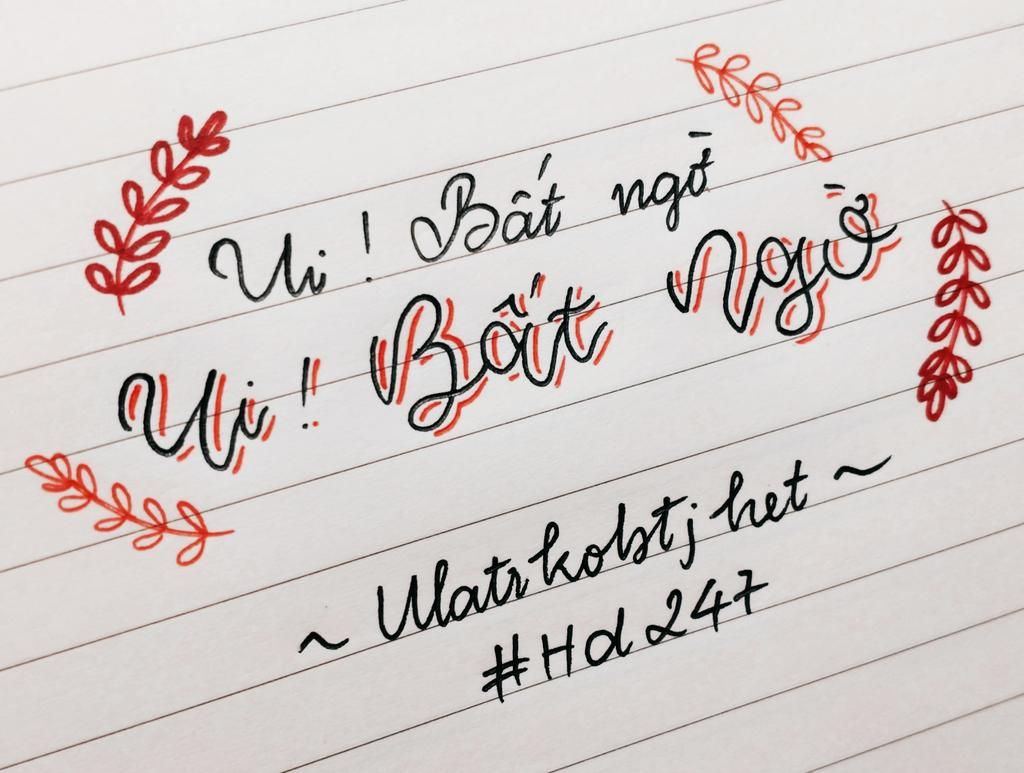 Ui ! Bất ngờ
Ui ! Bất Ngờ
~ Ulatr kolstj het ~
#Hd 247